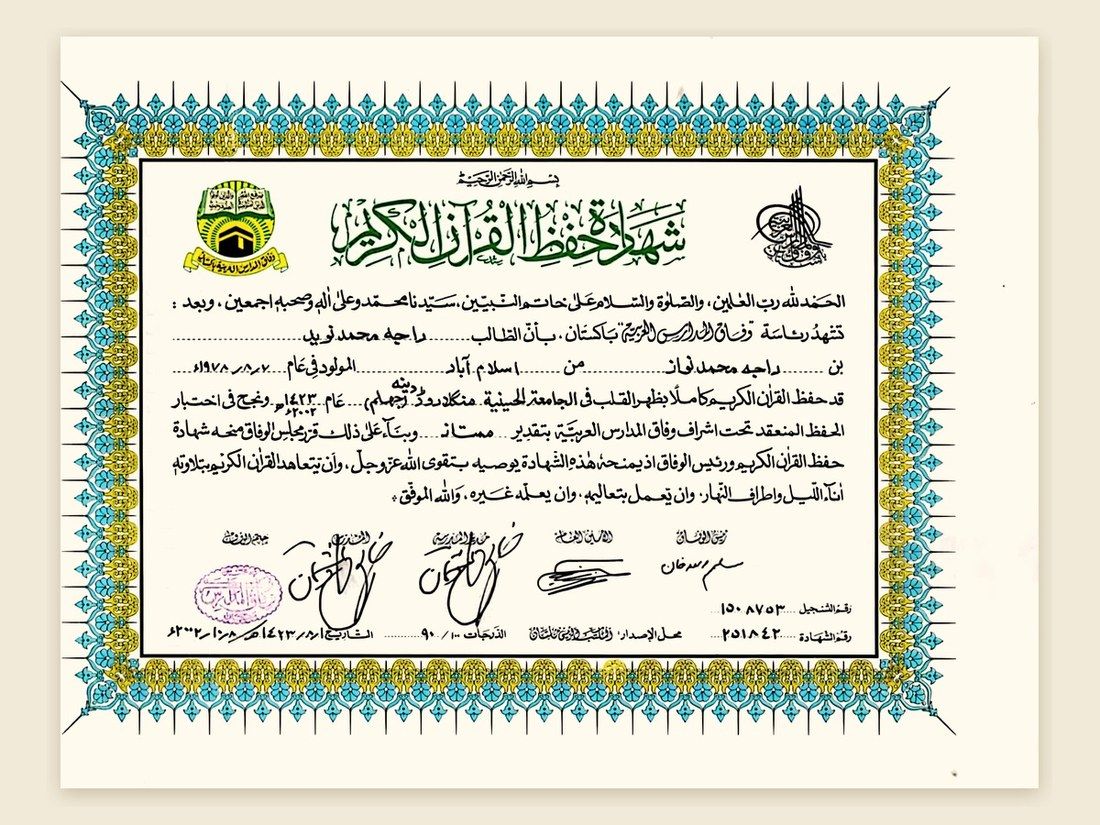 بسم الله الرحمن الرحيم
شهادة حفظ القرآن الكريم
وفاق المدارس العربية باكستان
الحمد لله رب العٰلمين، والصلوٰة والسلام علیٰ خاتم النبيّين، سيّدنا محمّد وعلیٰ اٰلهٖ وصحبهٖ اجمعين، وبعد:
تشهد رئاسة وفاق المدارس العربية باكستان، بأنّ الطالب........ راجه محمد نويد
بن ........ راجه محمد نواز ........ من ........ اسلام آباد ........ المولود في عام ١٩٧٨/٨/٧ء
قد حفظ القراٰن الكريم كاملًا بظهر القلب في الجامعة الحنينية منگلا روڈ دينه (جهلم)، عام ١٤٢٣ھ ٢٠٠٢ء ونجح في اختبار
الحفظ المنعقد تحت اشراف وفاق المدارس العربيّة بتقدير ... ممتاز .... وبناءً علیٰ ذلك قرّر مجلس الوفاق منحه شهادة
حفظ القراٰن الكريم ورئيس الوفاق اذ يمنحهٗ هٰذه الشّهادة يوصيه بتقوی الله عزّوجلّ، وأن يتعاهد القراٰن الكريم بتلاوتهٖ
اٰناءَ اللّيل واطراف النّهار، وان يّعمل بتعاليمهٖ، وان يعلّمه غيره، والله الموفّق،
رئيس الوفاق الأمين العام مدير المدرسة الختم
سليم الله خان
رقم التسجيل .... ١٥٠٨٧٥٣
رقم الشهادة .... ٢٥١٨٤٢ محل الإصدار: الدّرجات ٩٠/١٠٠ التاريخ ١٤٢٣/٨/١ھ ٢٠٠٢/١٠/٨ء